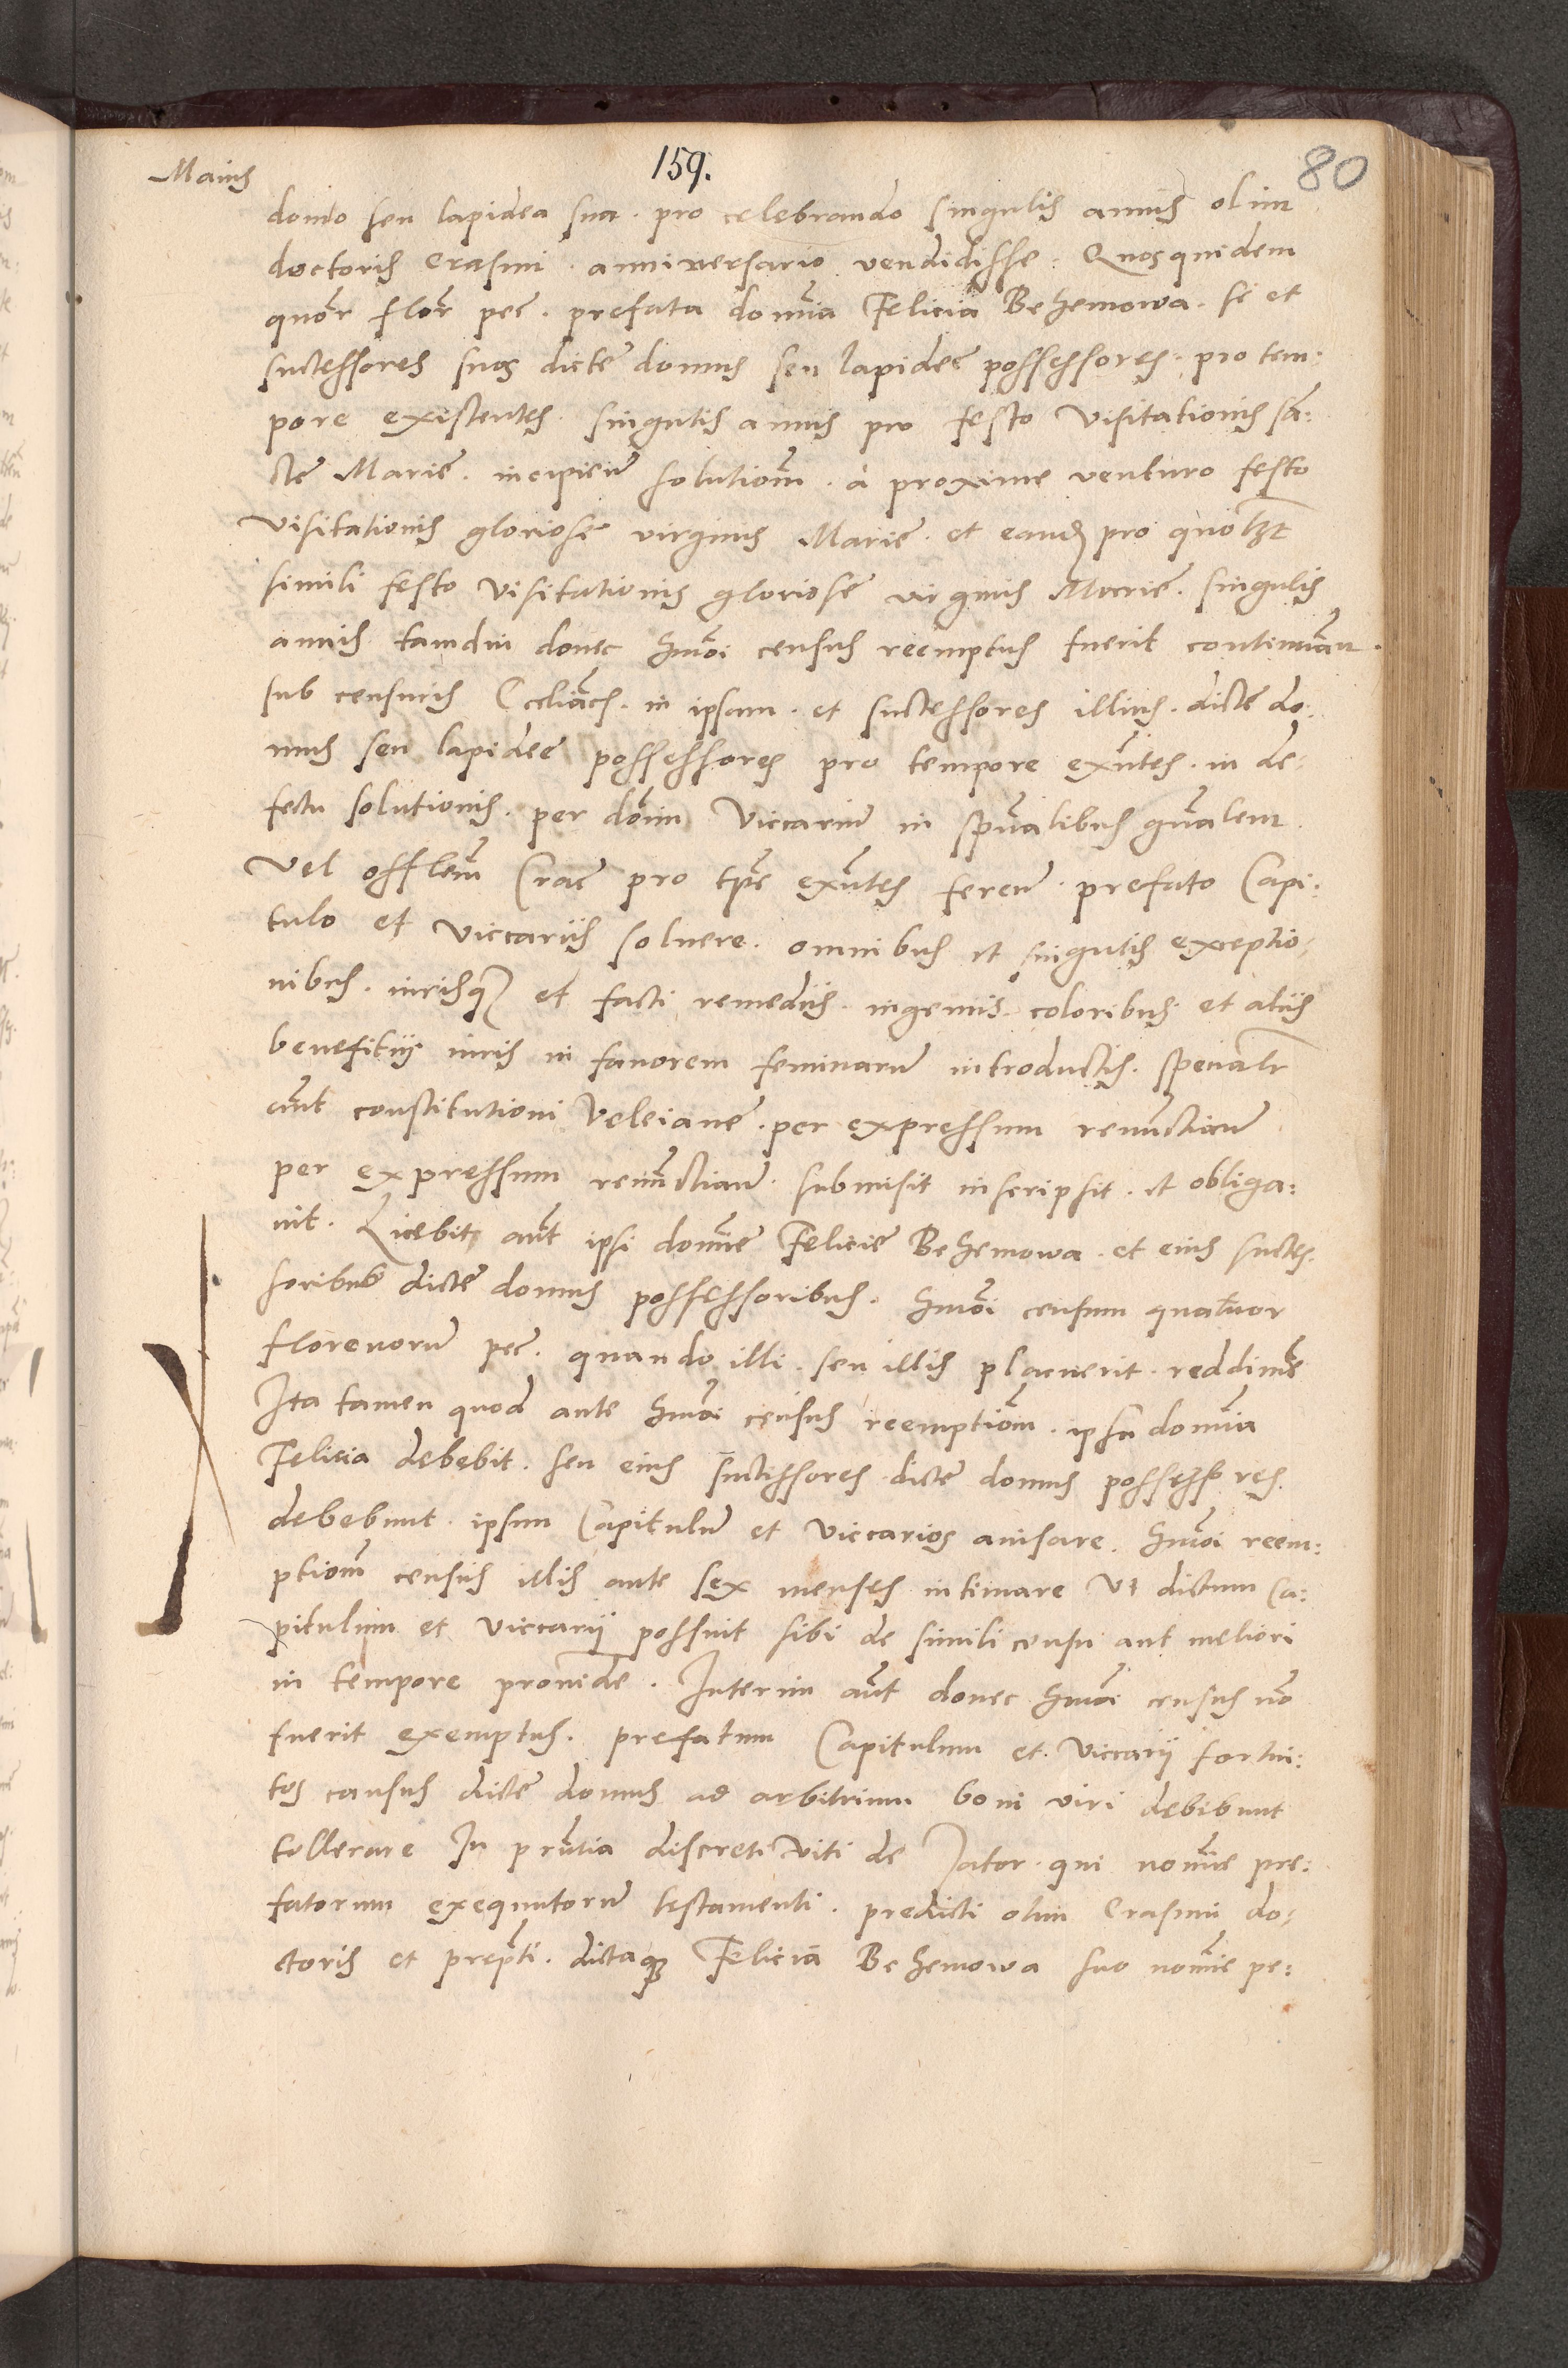 159.
80
Maius
domo seu lapidea sua. pro celebrando singulis annis olim
doctoris erasmi. anniversario vendidisse: Quosquidem
quor flor pec. prefata domina Felicia Behemowa. se et
successores suos dicte domus seu lapidee possessores. pro tem:
pore existentes. singulis annis pro festo Visitationis sa:
cte Marie. incipien solutiom. a proxime venturo festo
visitationis gloriose virginis Marie. et eand pro quolzt
simili festo Visitationis gloriose virginis Marie. singulis
annis tamdiu donec hmoi census reemptus fuerit continuan.
sub censuris Eccliacis. in ipsam. et successores illius. dicte do:
mus seu lapidee possessores pro tempore exntes. in de:
fectu solutionis. per dom Viccarium in spualibus gnalem.
Vel offlem Crac pro tpe exntes feren. prefato Capi:
tulo et Viccariis soluere. omnibus et singulis exceptio:
nibus. iurisq et facti remediis. ingeniis. coloribus et aliis
benefitiis iuris in fauorem feminarum introductis. specialr
aut constitutioni Veleiane. per expressum renunctian
per expressum renunctian. submisit inscripsit. et obliga:
uit. Licebit aut ipsi domine Felicie Behemowa. et eius succes:
soribus dicte domus possessoribus. hmoi censum quatuor
florenorum pec. quando illi. seu illis placuerit. reddime
Ita tamen quod ante hmoi census reemptiom. ipsa domina
Felicia debebit. seu eius successores dicte domus possessores.
debebunt. ipsum Capitulum et Viccarios auisare. hmoi reem:
ptiom census illis ante sex menses intimare Vt dictum Ca:
pitulum et Viccarii possint sibi de simili censu aut meliori
in tempore prouide. Interim aut donec hmoi census no
fuerit exemptus. prefatum Capitulum et Viccarii fortui:
tos causus dicte domus ad arbitrium boni viri debebunt
tollerare In prntia discreti Viti de Jator. qui nomine pre:
fatorum exequutorum testamenti. predicti olim Erasmi do:
ctoris et prepti. dictaq Felicia Behemowa suo nomine pe: